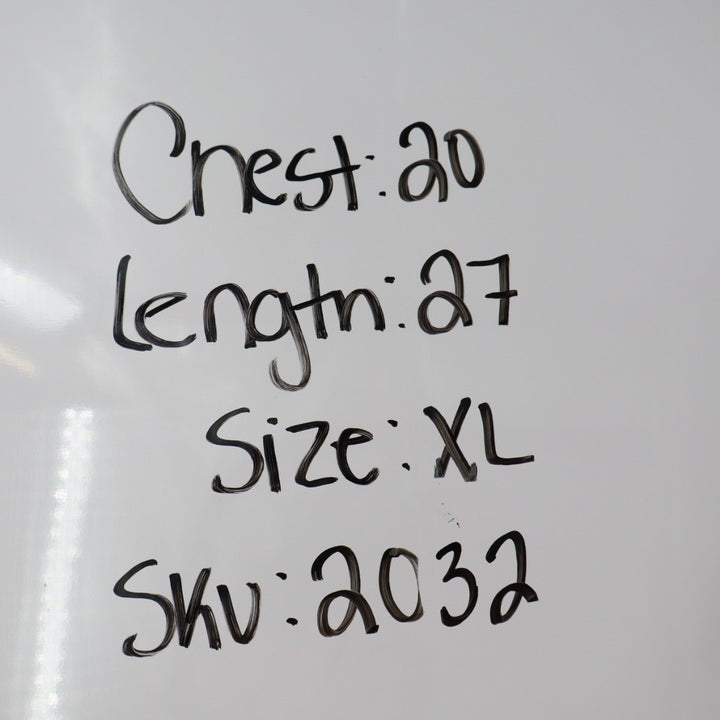 Chest: 20
Length: 27
Size: XL
SKU: 2032